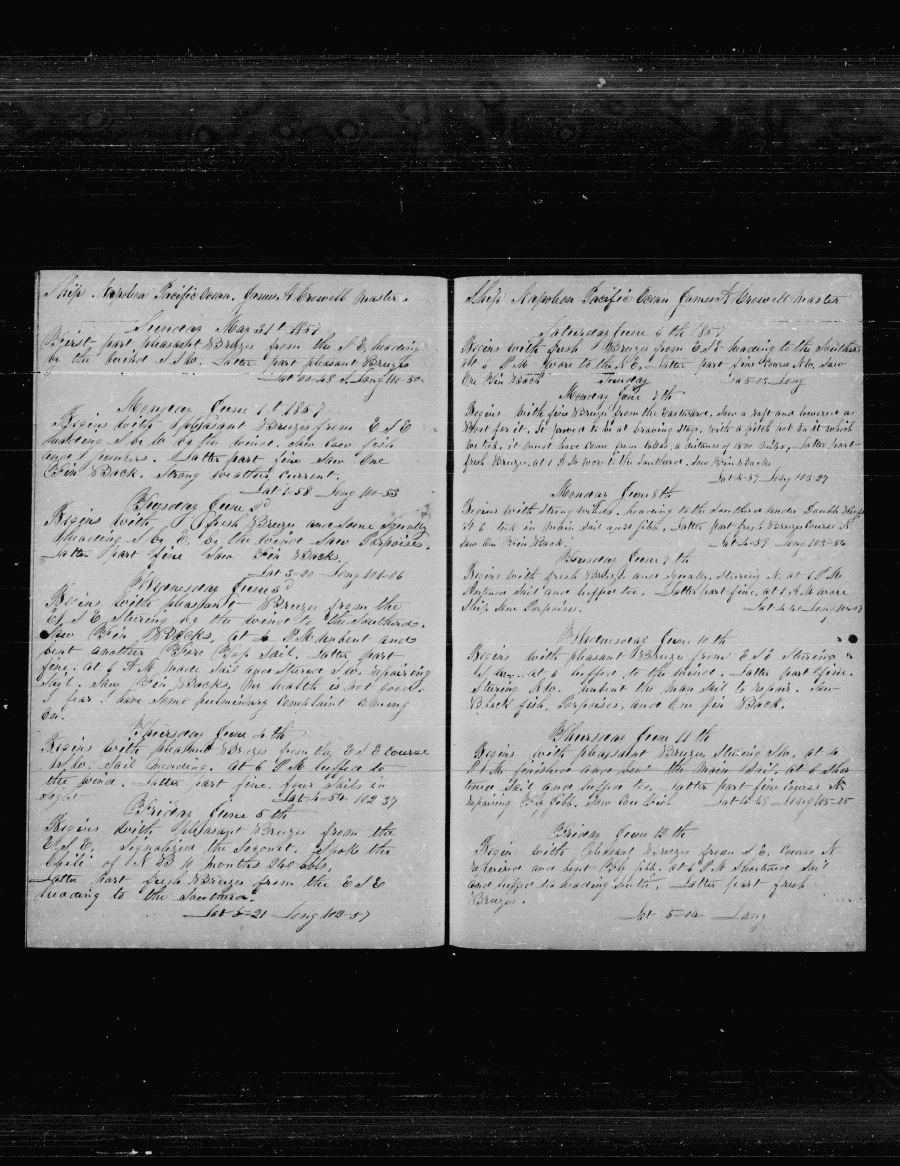 Ship Napoleon Pacific Ocean. James A Crowell Master.
Sunday May 31st 1857
First part pleasant Breezes from the S E heading
by the Wind S S W. Latter part pleasant Breezes
Lat 00-48 S. Long 110-50
Monday June 1st 1857
Begins with pleasant Breezes from E S E
heading S by W by the wind. Saw Cow fish
and jumpers. Latter part fine Saw One
Fin Back. Strong weather current.
Lat 1-58 Long 110-53
Tuesday June 2d
Begins with fresh Breezes and some squally
heading S by E. by the wind Saw Porpoises.
Latter part fine Saw Fin Backs.
Lat 3-20 Long 101-06
Wednesday June 3d
Begins with pleasant Breezes from the
E S E Steering by the wind to the Southard.
Saw Fin Backs. at 6 P M unbent and
bent another Fore Top Sail. Latter part
fine. at 6 A M made Sail and Steered S W. repairing
Sail. Saw Fin Backs. My health is not good.
I fear I have some pulmonary complaint coming
On.
Thursday June 4th
Begins with pleasant Breezes from the E S E course
S S W. Sail mending. at 6 P M luffed to
the wind. Latter part fine. four Sails in
Sight Lat 4-54 102 37
Friday June 5th
Begins with pleasant Breezes from the
E S E. Signalized the Seconet. Spoke the
Chili of N B 10 months 240 bbls,
Latter part fresh Breezes from the E S E
heading to the Southard.
Lat 5-21 Long 102-57
Ship Napoleon Pacific Ocean James A Crowell Master
Saturday June 6th 1857
Begins with fresh Breezes from E S E heading to the Southard
At 6 P M wore to the N E. Latter part fine Course N W. Saw
One Fin Back Lat 5-03 Long
Sunday
Monday June 7th
Begins With fine Breezes from the Eastward. Saw a raft and lowered a
Boat for it. It proved to be a staging, with a pitch pot on it which
we took. it must have come from a distance of 1800 miles, Latter part
fresh Breezes. at 1 A M wore to the Southard. Saw Fin Back
Lat 4-59 Long 103-27
Monday June 8th
Begins with Strong winds. heading to the Southard under Double Reefs
At 6 took in Main Sail and Jib. Latter part fresh Breezes Course N
Saw One Fin Back. Lat 4-59 Long 103-54
Tuesday June 9th
Begins with fresh Breezes and squally, Steering N. at 6 P M
Shortened Sail and luffed too. Latter part fine, at 1 A M wore
Ship Saw Porpoises. Lat 4-41 Long 104-03
Wednesday June 10th
Begins with pleasant Breezes from E S E Steering
at 6 luffed to the wind. Latter part fine.
Steering N W. unbent the Main Sail to repair. Saw
Black fish, Porpoises, and One fin Back.
Thursday June 11th
Begins with pleasant Breezes Steering N W. at 4
P M finished and bent the Main Sail. at 6 Shor
tened Sail and luffed too. Latter part fine course N
repairing Jib. Saw Cow fish. Lat 4-48 Long 105-15
Friday June 12th
Begins with pleasant Breezes from S E. Course N
repaired and bent Jib. at 6 P M Shortened Sail
and luffed too heading South. Latter part fresh
Breezes.
Lat 5-04 Long